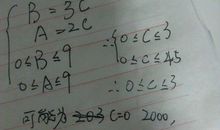 B = 3C
A = 2C
0≤B≤9 ∴ 0≤C≤3
0≤A≤9 0≤C≤4.5
∴ 0≤C≤3
可能为 C=0 2000,